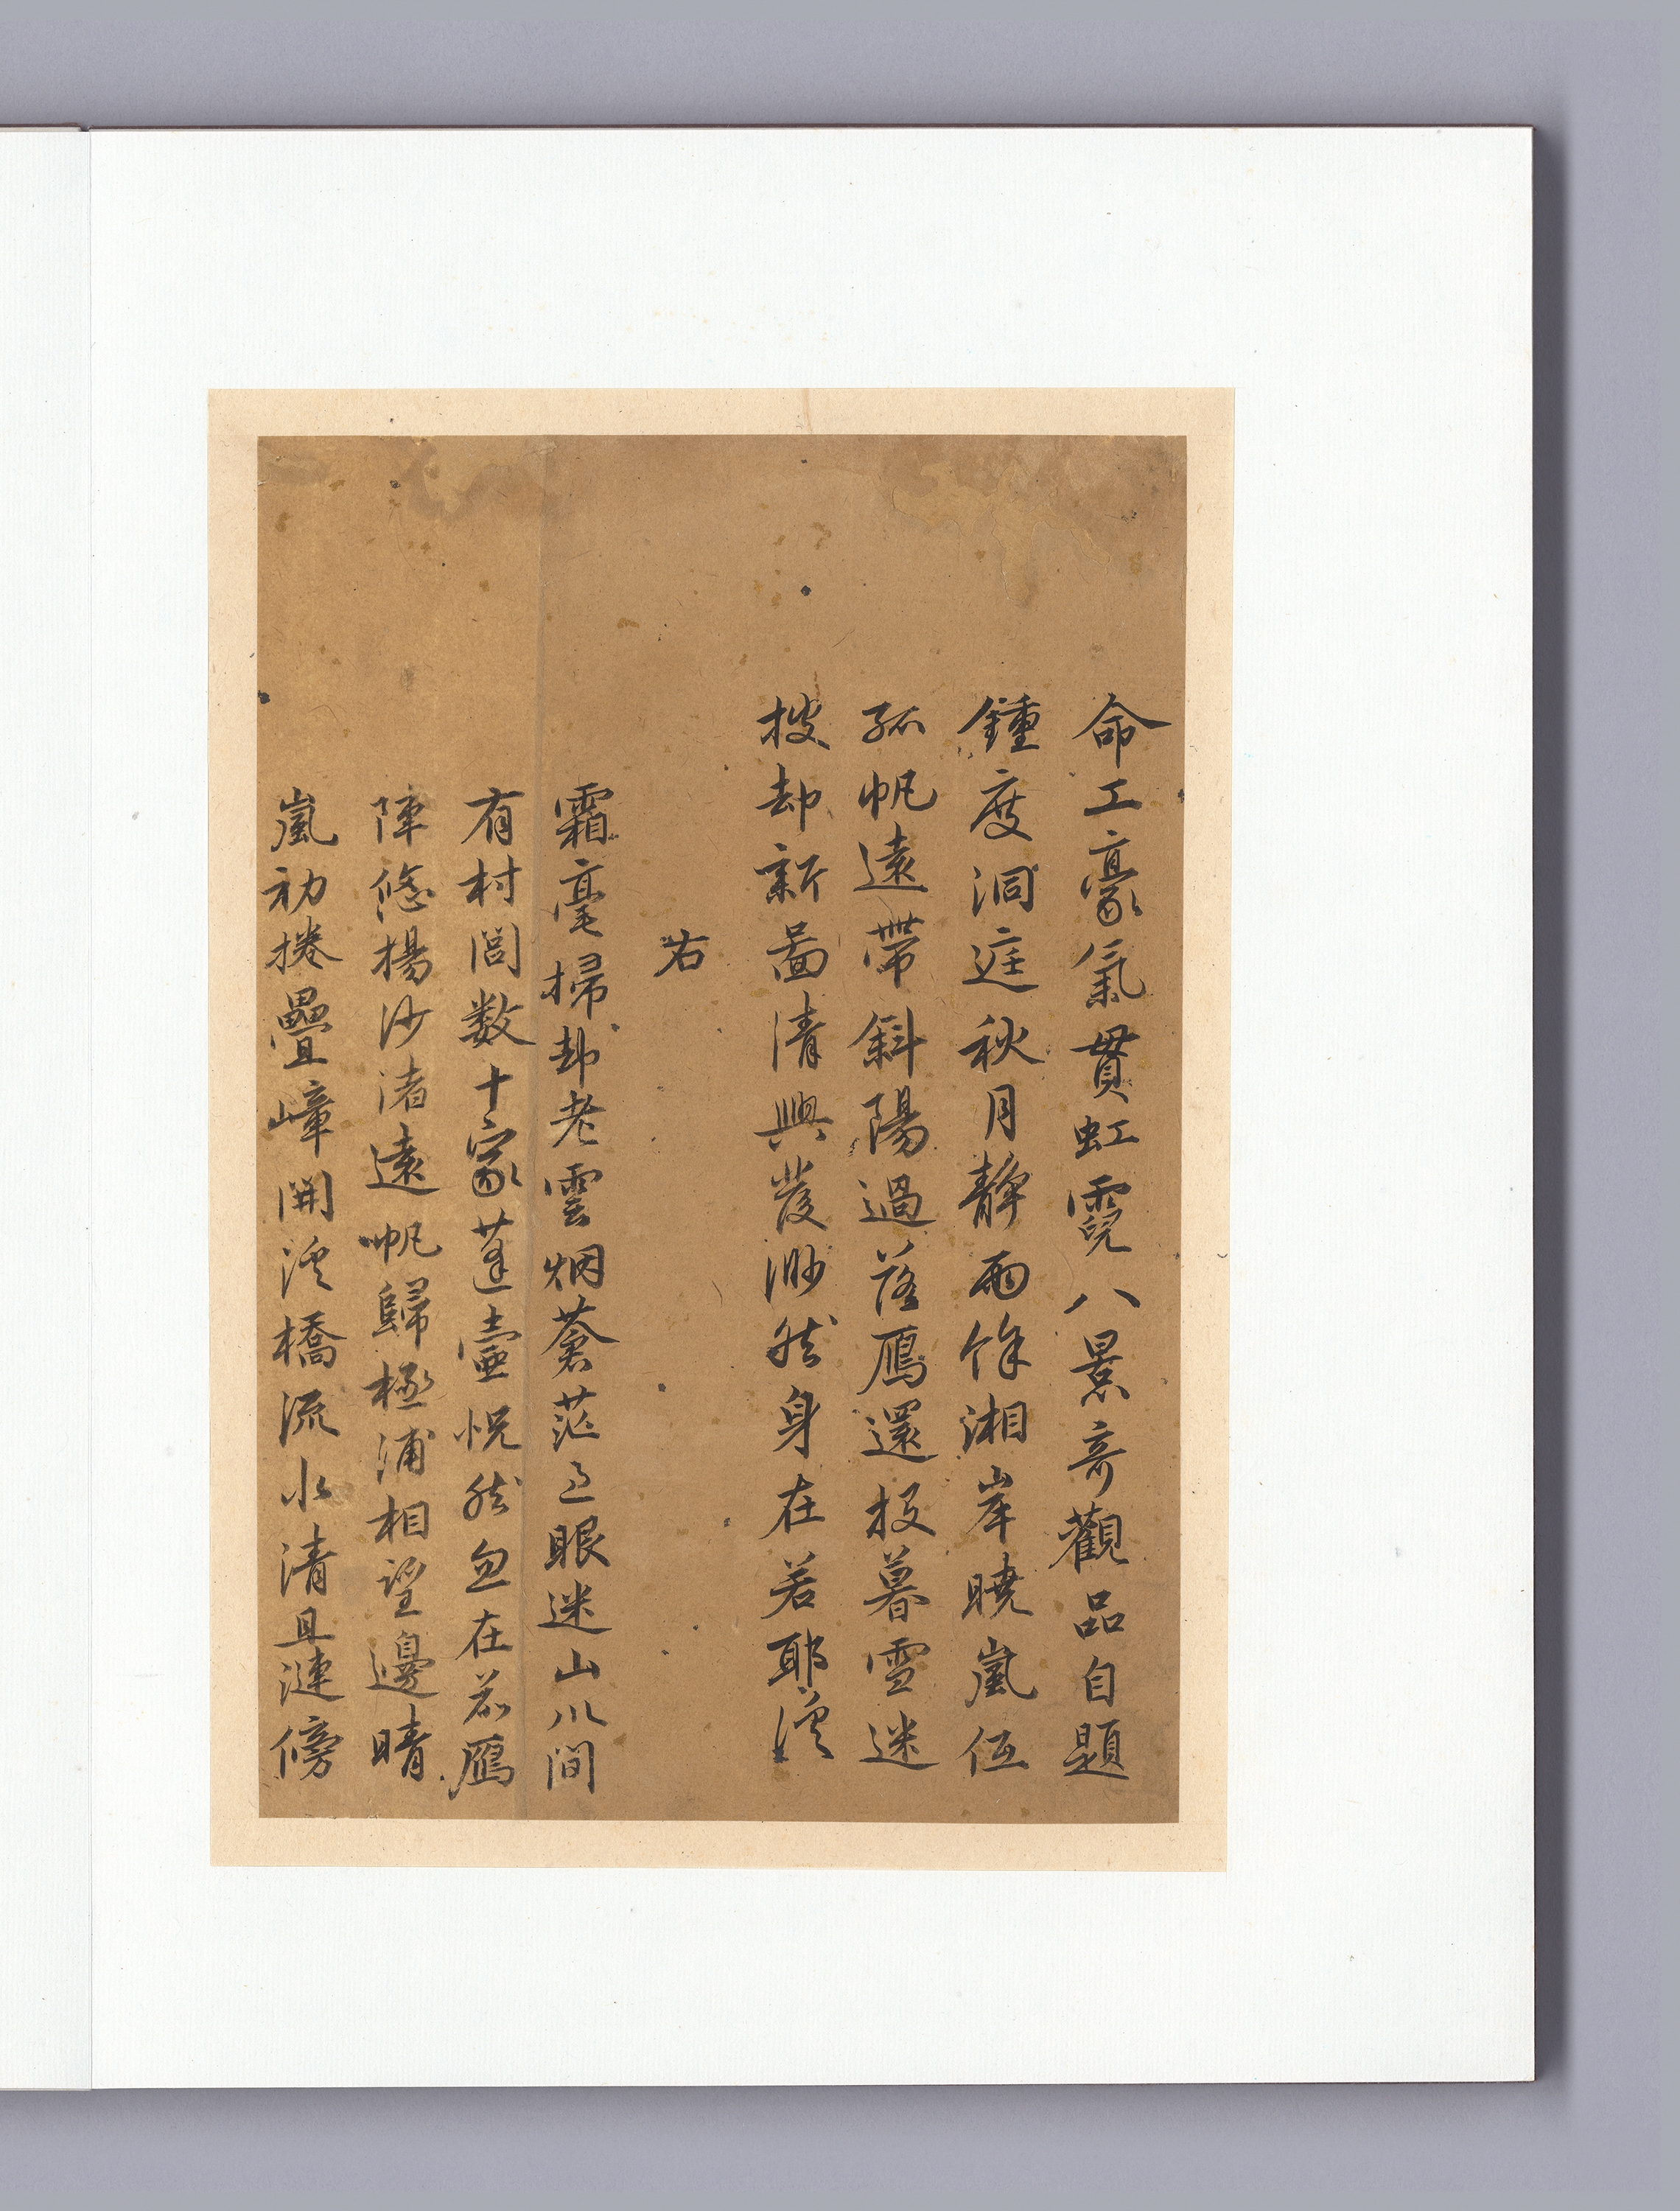 命工豪氣貫虹霓八景奇觀品自題
鍾度洞庭秋月靜雨餘湘岸曉嵐低
孤帆遠帶斜陽過落鴈還投暮雪迷
披却新啚清興發渺然身在若耶溪
右
霜毫掃却老雲烟蒼茫眼迷山川間
有村閭数十家蓬壷恍然忽在茲鴈
陣悠揚沙渚遠帆歸極浦相望邊晴
嵐初捲疊嶂開溪橋流水清且漣傍